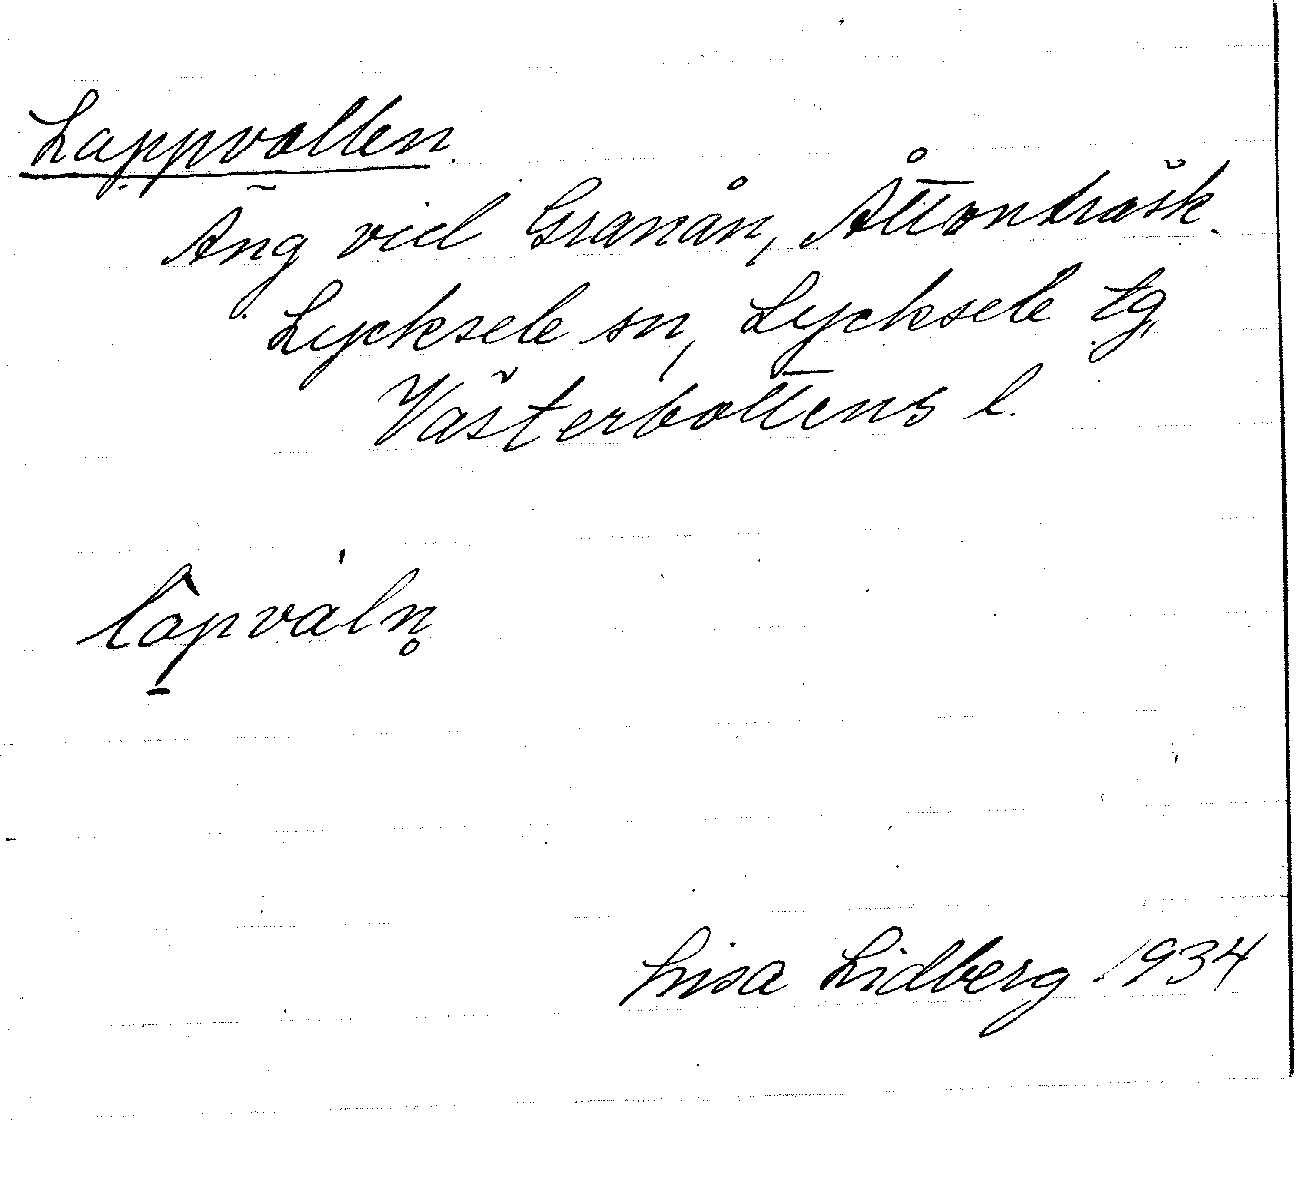 Lappvallen.
Äng vid Granån, Åttonträsk.
Lycksele sn, Lycksele tg,
Västerbottens l.
làpváln̥
Lisa Lidberg 1934